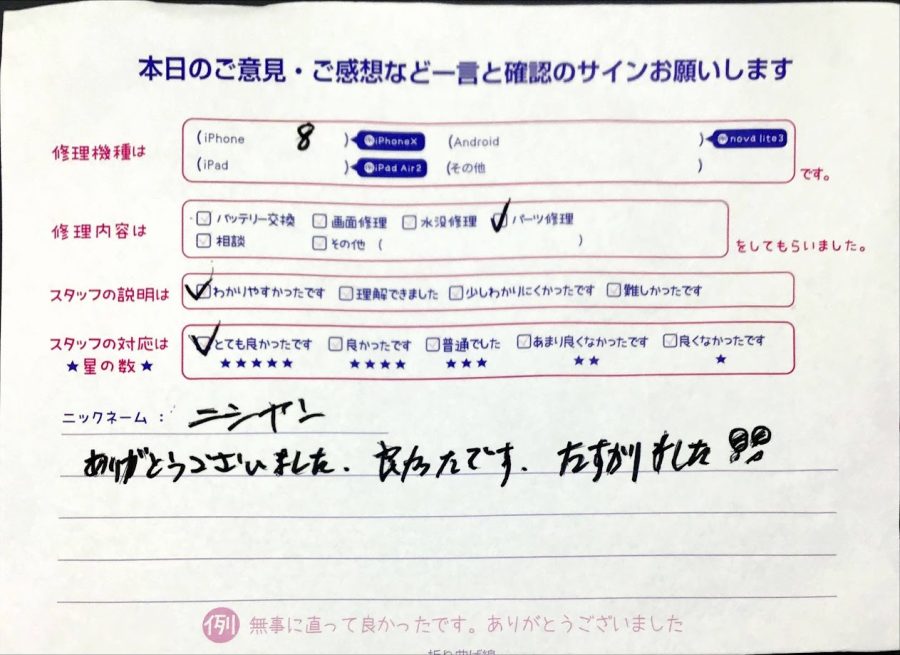 本日のご意見・ご感想など一言と確認のサインお願いします
修理機種は
(iPhone 8 ) iPhoneX (Android ) nova lite3
(iPad ) iPad Air2 (その他 ) です。
修理内容は
バッテリー交換 画面修理 水没修理 パーツ修理
相談 その他 ( ) をしてもらいました。
スタッフの説明は わかりやすかったです 理解できました 少しわかりにくかったです 難しかったです
スタッフの対応は とても良かったです 良かったです 普通でした あまり良くなかったです 良くなかったです
★星の数★ ★★★★★ ★★★★ ★★★ ★★ ★
ニックネーム: ニシヤン
ありがとうございました. 良かったです. たすかりました!!
例 無事に直って良かったです。ありがとうございました